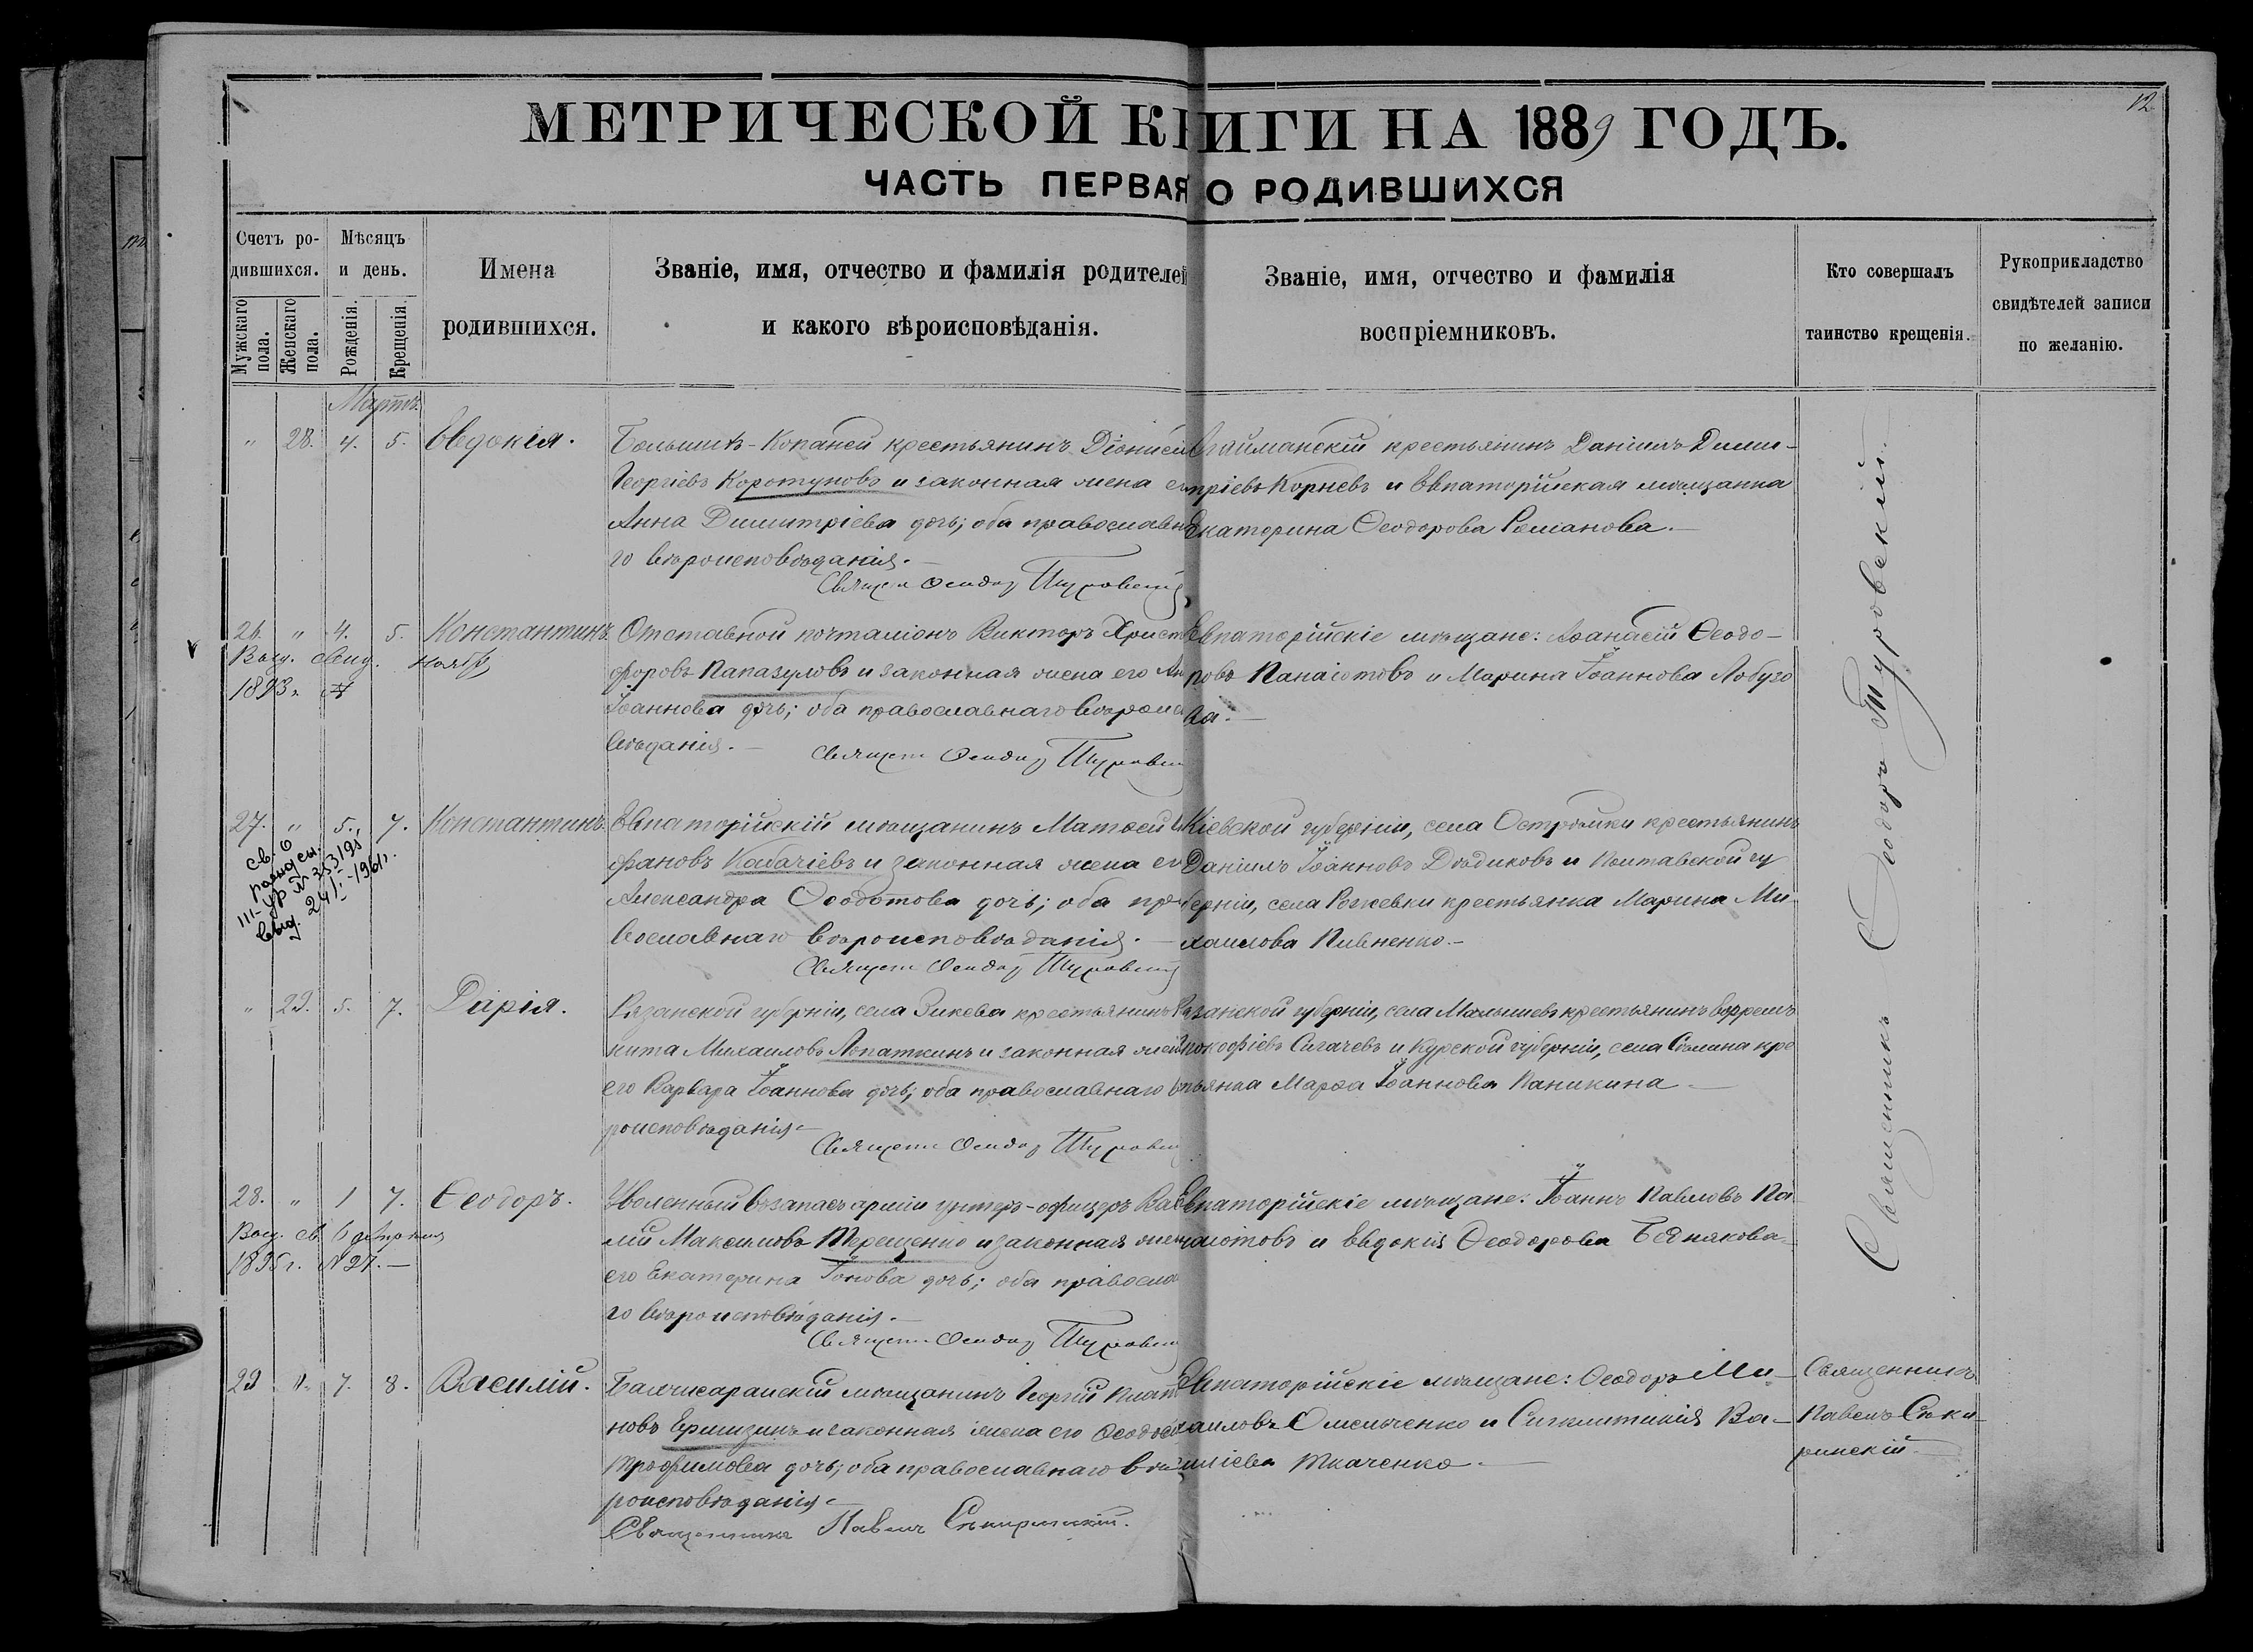 МЕТРИЧЕСКОЙ КНИГИ НА 1889 ГОДЪ.
12
ЧАСТЬ ПЕРВАЯ О РОДИВШИХСЯ
Счетъ ро-
дившихся.
Мужскаго пола.
Женскаго пола.
Мѣсяцъ
и день.
Рожденія.
Крещенія.
Имена
родившихся.
Званіе, имя, отчество и фамилія родителей
и какого вѣроисповѣданія.
Званіе, имя, отчество и фамилія
воспріемниковъ.
Кто совершалъ
таинство крещенія.
Рукоприкладство
свидѣтелей записи
по желанію.
Мартъ
" 28. 4. 5. Евдокія.
Большихъ-Копаней крестьянинъ Діонисій
Георгіевъ Коротуновъ и законная жена его
Анна Димитріева дочь; оба православна
го вѣроисповѣданія.
Священ Ѳеодор Туровскій
Агайманскій крестьянинъ Даніилъ Дими-
тріевъ Корневъ и Евпаторійская мѣщанка
Екатерина Ѳеодорова Романова.
26. " 4. 5. Константинъ.
Выд. свид. ноябр
1893 г.
Отставной почталіонъ Викторъ Христ
форовъ Папазуловъ и законная жена его Ан
Іоаннова дочь; оба православнаго вѣроис
вѣданія.
Священ Ѳеодор Туровск
Евпаторійскіе мѣщане: Аѳанасій Ѳеодо-
ровъ Панаіотовъ и Марина Іоаннова Лобузо
ва.
27. " 5. 7. Константинъ.
св. о
рожд сы.
III-УР № 353195
выд. 24/I-1961г.
Евпаторійскій мѣщанинъ Матѳей
фановъ Кабачіевъ и законная жена его
Александра Ѳеодотова дочь; оба пра
вославнаго вѣроисповѣданія.
Священ Ѳеодор Туровскій
Кіевской губерніи, села Острѣйки крестьянинъ
Даніилъ Іоанновъ Дѣдиковъ и Полтавской гу
берніи, села Рожевки крестьянка Марина Ми
хаилова Пивненко.
" 29. 5. 7. Дарія.
Рязанской губерніи, села Зикева крестьянинъ
кита Михаиловъ Лопаткинъ и законная жена
его Варвара Іоаннова дочь; оба православнаго вѣ
роисповѣданія
Священ Ѳеодор Туровск
Рязанской губерніи, села Малышева крестьянинъ Ефремъ
Прокофіевъ Сигачевъ и Курской губерніи, села кре
тьянка Марѳа Іоаннова Паникина
28. " 1 7. Ѳеодоръ.
Выд. св. 6
1895 г. № 27.
Уволенный въ запасъ арміи унтеръ-офицеръ Васи
лій Максимовъ Терещенко и законная жена
его Екатерина Іонова дочь; оба правосла
го вѣроисповѣданія.
Священ Ѳеодор Туровск
Евпаторійскіе мѣщане: Іоаннъ Павловъ Па
наіотовъ и Евдокія Ѳеодорова Беднякова
29 " 7. 8. Василій.
Бахчисарайскій мѣщанинъ Георгій Плат
новъ Ермизинъ и законная жена его Ѳеодос
Трофимова дочь; оба православнаго вѣ
роисповѣданія
Священникъ Павелъ Секиринскій.
Евпаторійскіе мѣщане: Ѳеодоръ Ми
хаиловъ Омельченко и Синклитикія Ва-
силіева Ткаченко.
Священникъ Ѳеодоръ Туровскій.
Священникъ
Павелъ Секи-
ринскій